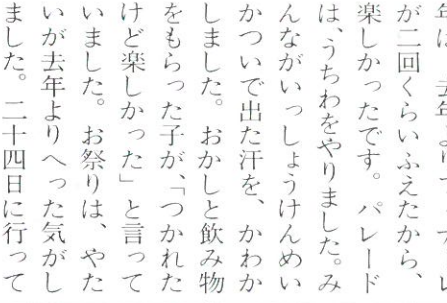 が二回くらいふえたから、
楽しかったです。パレード
は、うちわをやりました。み
んながいっしょうけんめい
かついで出た汗を、かわか
しました。おかしと飲み物
をもらった子が、「つかれた
けど楽しかった」と言って
いました。お祭りは、やた
いが去年よりへった気がし
ました。二十四日に行って